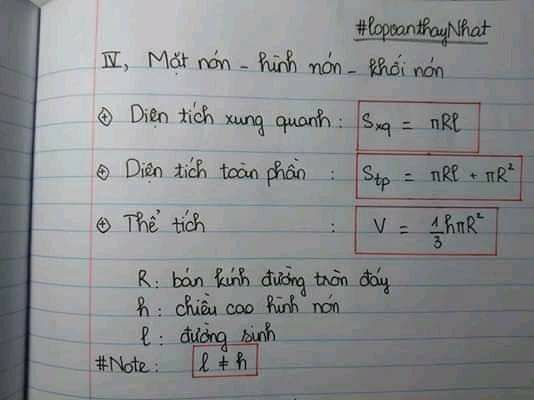 #lopoanthayNhat
IV, Mặt nón - hình nón - khối nón
⊕ Diện tích xung quanh : Sxq = πRl
⊕ Diện tích toàn phần : Stp = πRl + πR²
⊕ Thể tích : V = 1/3 hπR²
R : bán kính đường tròn đáy
h : chiều cao hình nón
l : đường sinh
#Note : l ≠ h